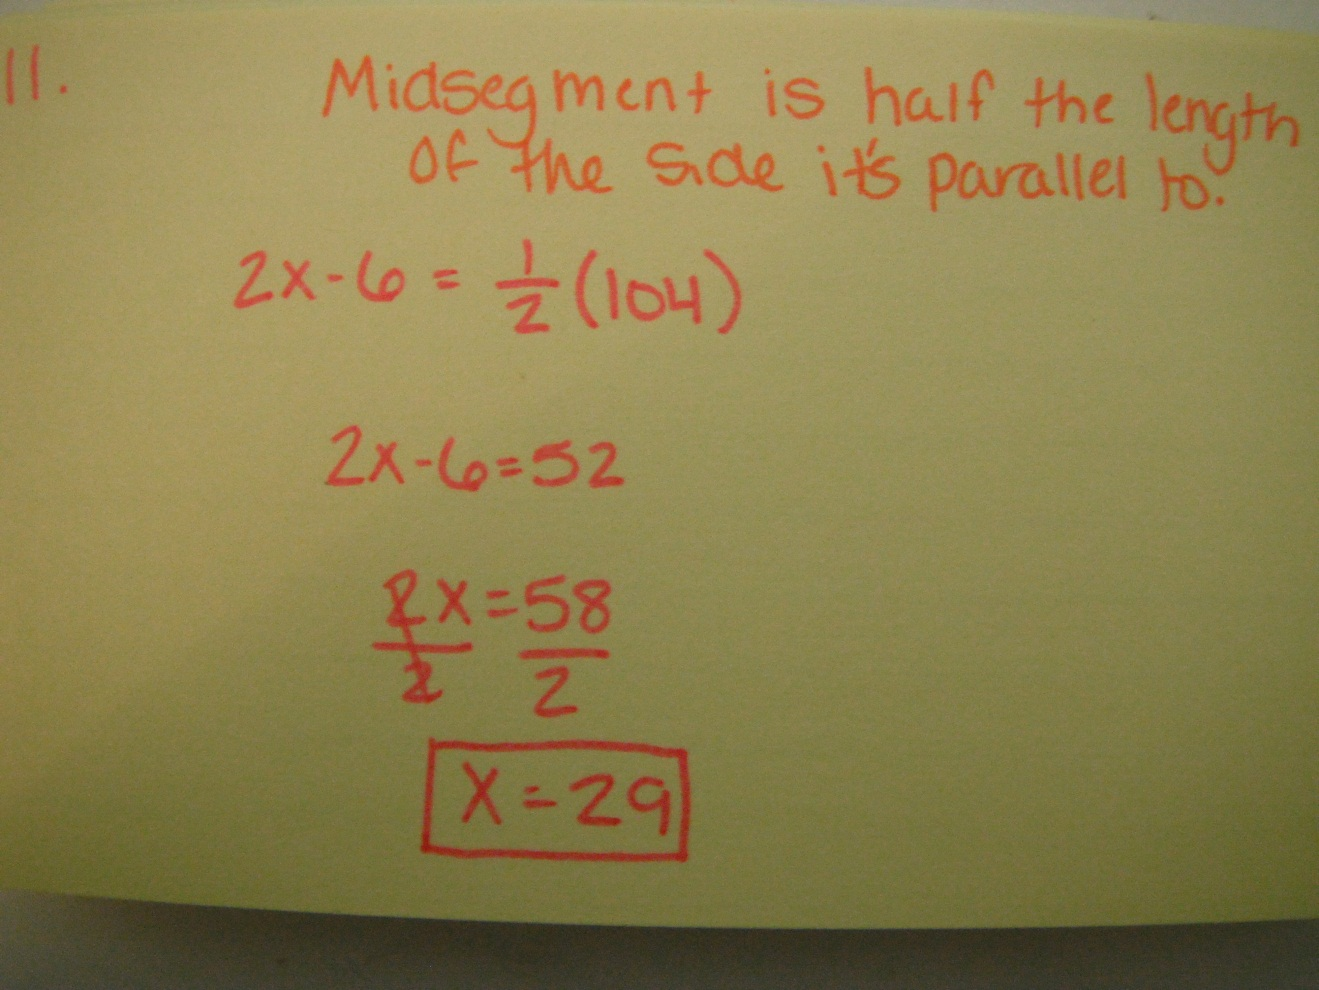 11.
Midsegment is half the length
of the side it's parallel to.
2x-6 = 1/2 (104)
2x-6=52
2x=58
2 2
x=29